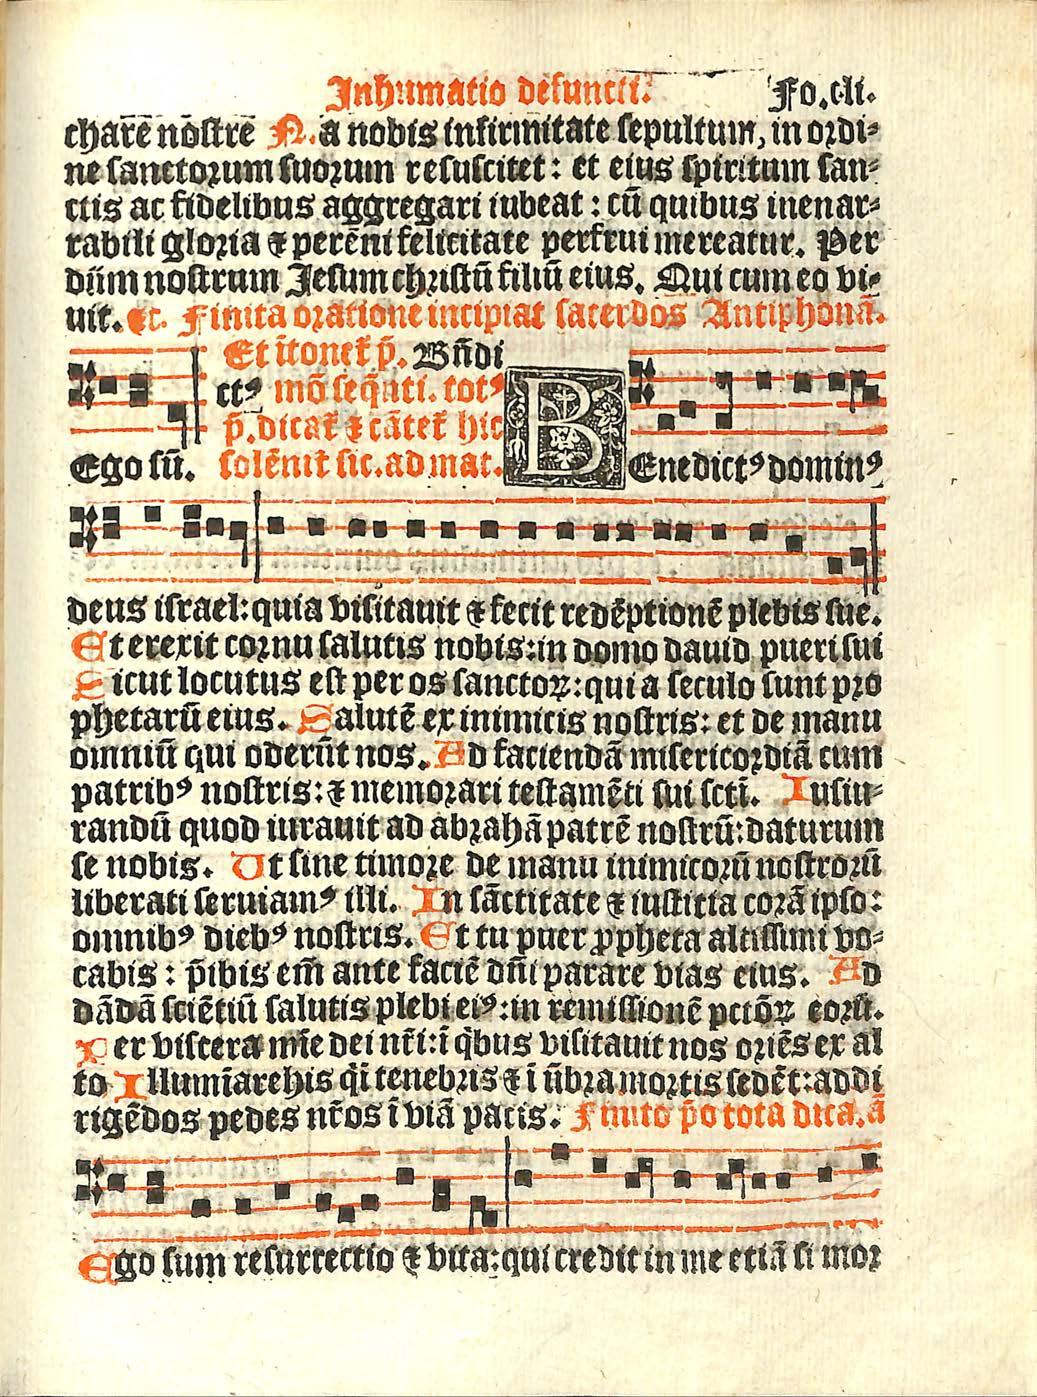 Inhumatio defuncti. Fo. cli.
charē nōstrē N. a nobis infirmitate sepultum, in ordi-
ne sanctorum suorum resuscitet: et eius spiritum san-
ctis ac fidelibus aggregari iubeat: cū quibus inenar-
rabili gloria ⁊ perēni felicitate perfrui mereatur. Per
dn̄m nostrum Jesum christū filiū eius. Qui cum eo vi-
uit. ⁊c. Finita oratione incipiat sacerdos Antiphonā.
Et ītonet̄ p̄. Bn̄di
ctꝰ mō seq̄nti. totꝰ
p̄. dicat̄ ⁊ cātet̄ hic
Ego sū. solēnit̄ sic. ad mat. BEnedictꝰ dominꝰ
deus israel: quia visitauit ⁊ fecit redēptionē plebis sue.
Et erexit cornu salutis nobis: in domo dauid pueri sui
Sicut locutus est per os sanctoꝝ: qui a seculo sunt pro
phetarū eius. Salutē ex inimicis nostris: et de manu
omniū qui oderūt nos. Ad faciendā misericordiā cum
patribꝰ nostris: ⁊ memorari testamēti sui scti̅. Iusiu-
randū quod iurauit ad abrahā patrē nostrū: daturum
se nobis. Ut sine timore de manu inimicorū nostrorū
liberati seruiamꝰ illi. In sāctitate ⁊ iustitia corā ipso:
omnibꝰ diebꝰ nostris. Et tu puer ꝓpheta altissimi vo-
cabis: p̄ibis em̄ ante faciē dn̄i parare vias eius. Ad
dādā sciētiū salutis plebi eiꝰ: in remissionē pctōꝝ eorū.
Per viscera mīe dei nr̄i: ī q̄bus visitauit nos oriēs ex al
to Illumīare his q̄i tenebris ⁊ ī ūbra mortis sedēt: ad di
rigēdos pedes nr̄os ī viā pacis. Finito p̄o tota dica. ā
Ego sum resurrectio ⁊ vita: qui credit in me etiā si mor